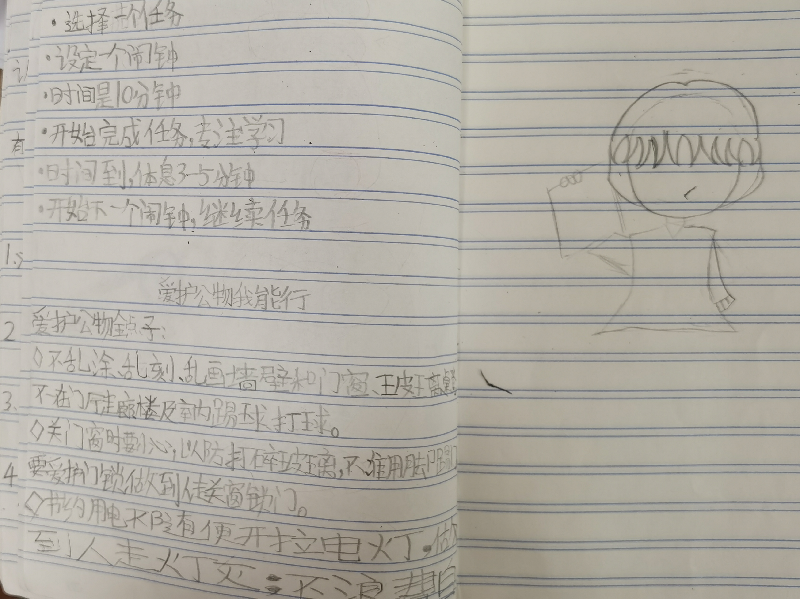 ·选择一个任务
·设定一个闹钟
·时间是10分钟
·开始完成任务,专注学习
·时间到,休息3-5分钟
·开始下一个闹钟,继续任务
1.
爱护公物我能行
2 爱护公物金点子:
◇不乱涂、乱刻、乱画墙壁和门窗、玻璃
3. 不在门厅走廊楼及室内踢球打球。
◇关门窗时要小心,以防打碎玻璃,不准用脚踢门
4 要爱护门锁做到人走关窗锁门。
◇节约用电 有使开 电灯。做
到人走火丁灭 不浪费